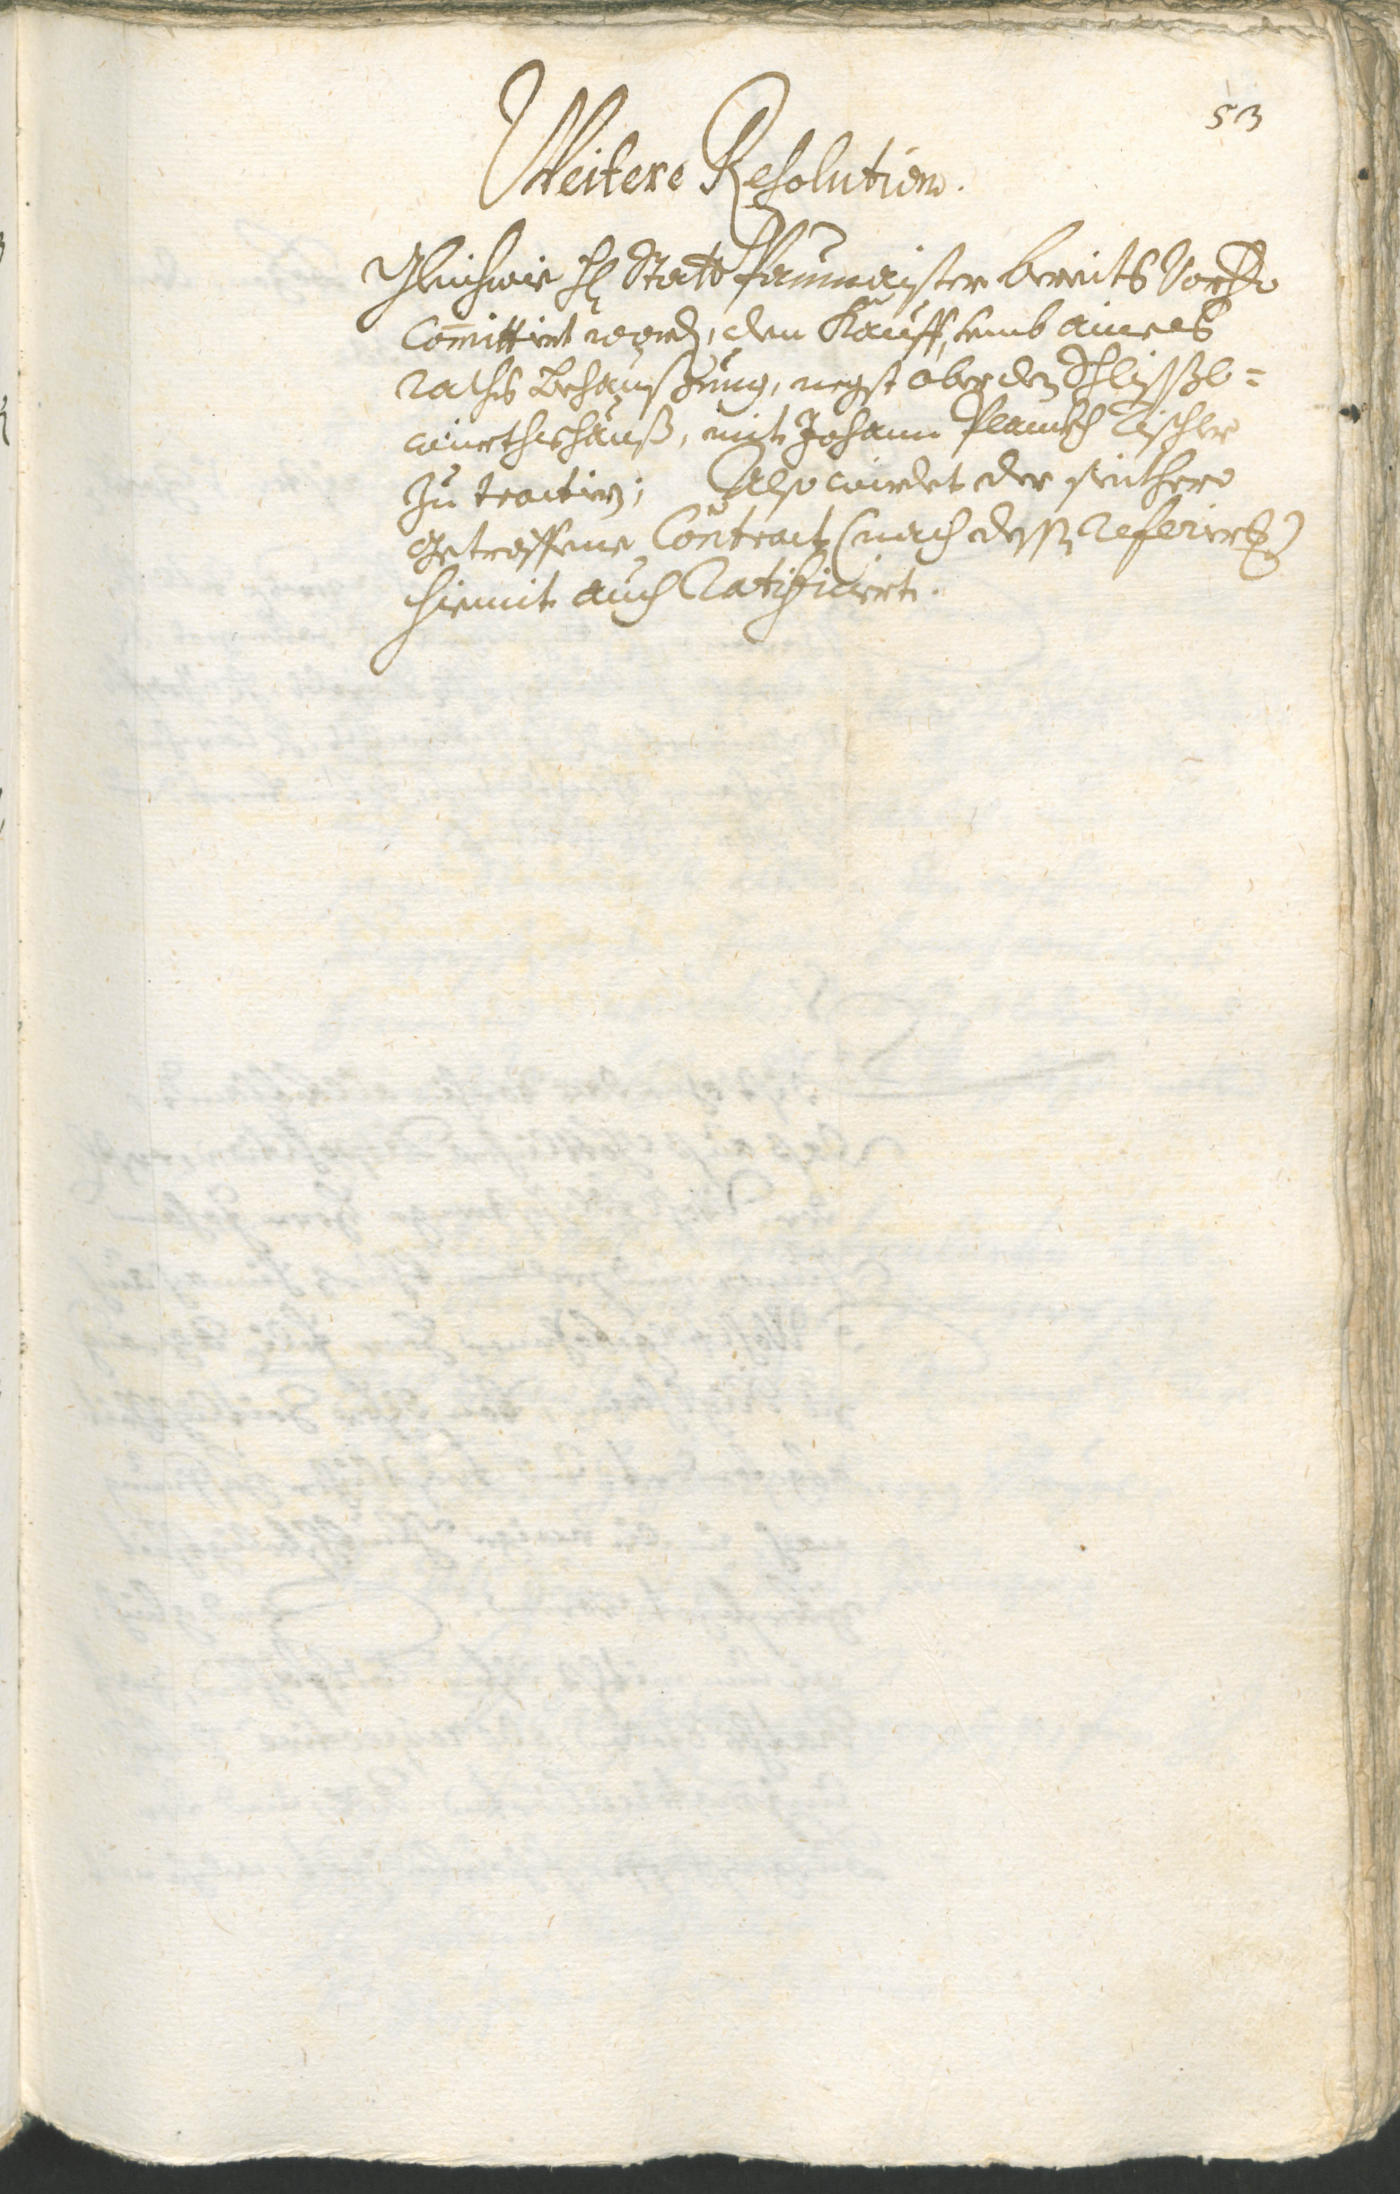 53
Weitere Resolution.
Gleichwie H: Statt Paumaister bereits vor
Committirt word, den Kauff, umb aines
raths Behaußung, negst ober dem Schlißl=
würthshauß, mit Johann Planckh Tischler
zu tractirn; Also würdet der seithero
getroffene Contract (nach dessen referirn)
hiemit auch Ratificiert.